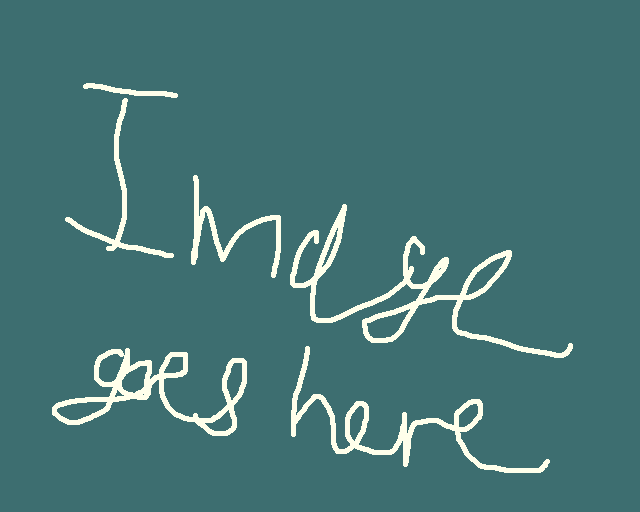 Image
goes here